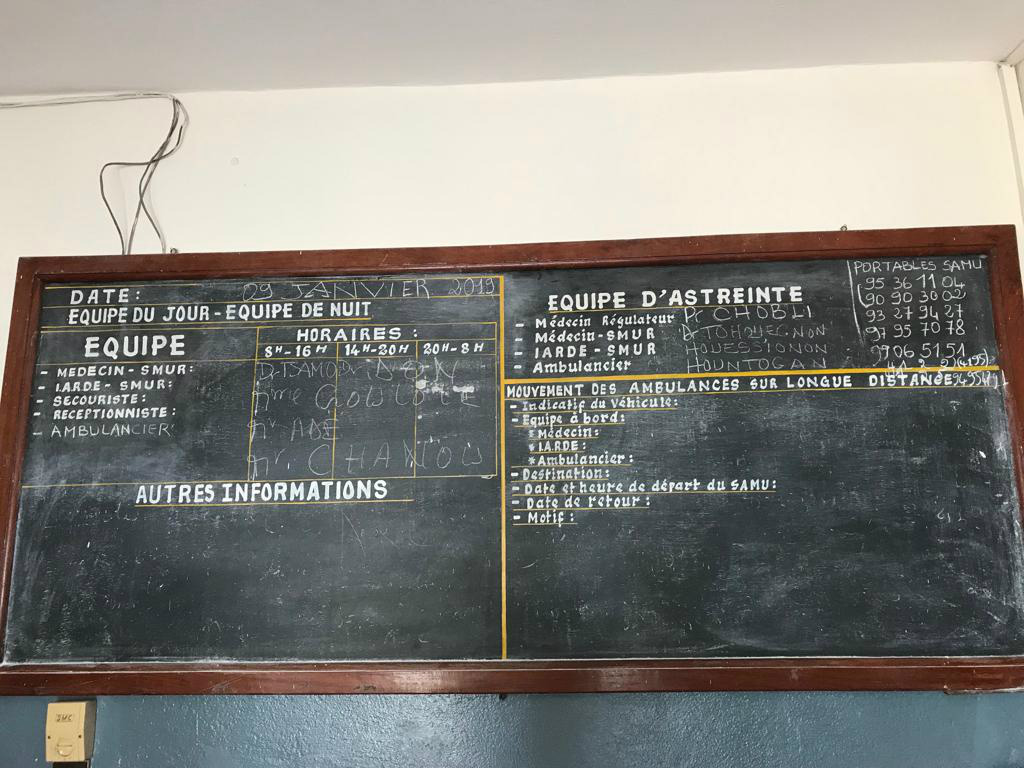 DATE: 09 JANVIER 2019
EQUIPE DU JOUR - EQUIPE DE NUIT
EQUIPE
HORAIRES :
8H-16H 14H-20H 20H-8H
- MEDECIN - SMUR:
- I.ARDE - SMUR:
- SECOURISTE:
- RECEPTIONNISTE:
- AMBULANCIER
Mr ADE
Mr. CHANOU
AUTRES INFORMATIONS
EQUIPE D'ASTREINTE
- Médecin Régulateur Pr CHOBLI
- Médecin - SMUR
- IARDE - SMUR
- Ambulancier HOUNTOGAN
PORTABLES SAMU
95 36 11 04
90 90 30 02
93 27 94 27
97 95 70 78
99 06 51 51
MOUVEMENT DES AMBULANCES SUR LONGUE DISTANCE
- Indicatif du véhicule:
- Equipe à bord:
*Médecin:
*I.ARDE:
*Ambulancier:
- Destination:
- Date et heure de départ du SAMU:
- Date de retour:
- Motif: